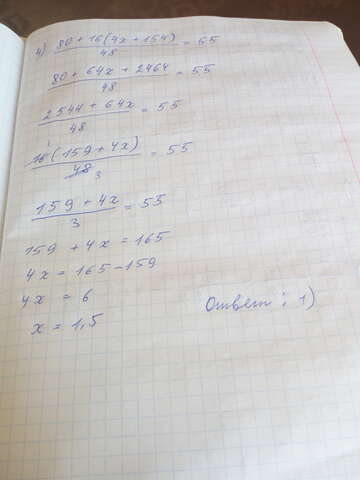 4) (80 + 16(4x + 154))/48 = 55
(80 + 64x + 2464)/48 = 55
(2544 + 64x)/48 = 55
16(159 + 4x)/48 = 55
1 3
(159 + 4x)/3 = 55
159 + 4x = 165
4x = 165 - 159
4x = 6
x = 1,5
Ответ: 1)